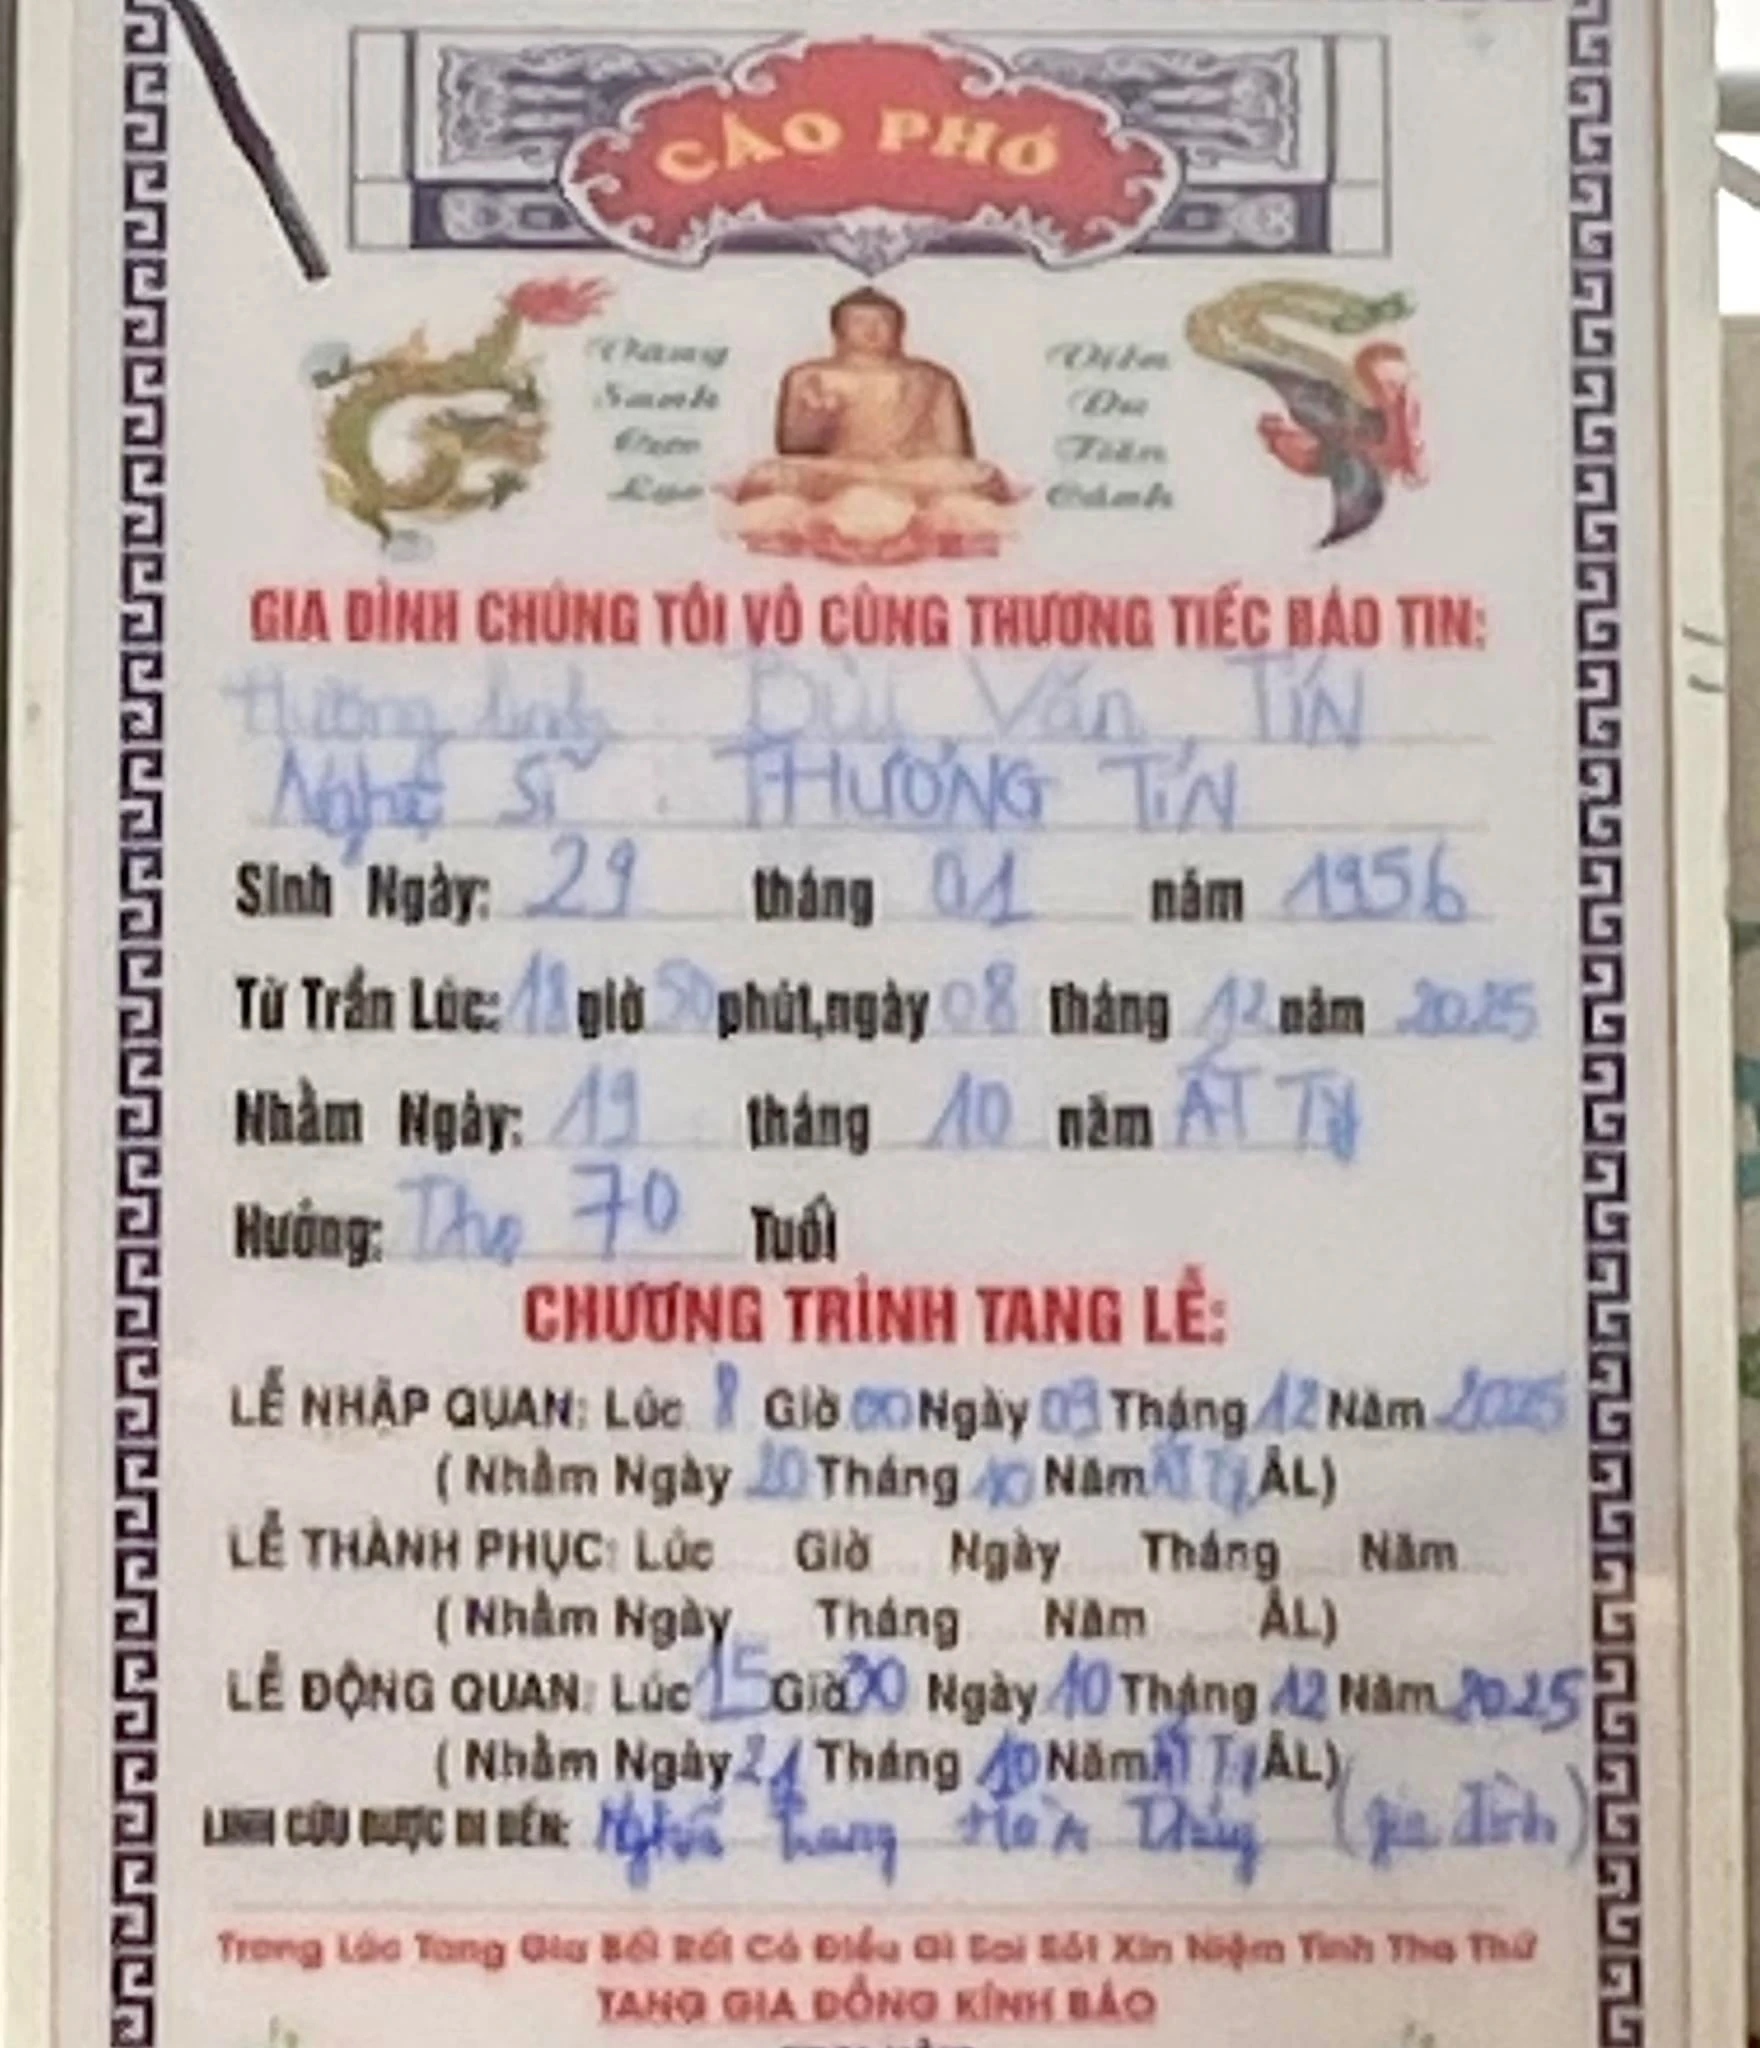 CÁO PHÓ
Vãng
Sanh
Cực
Lạc
Viên
Du
Tiên
Cảnh
GIA ĐÌNH CHÚNG TÔI VÔ CÙNG THƯƠNG TIẾC BÁO TIN:
Hương linh : Bùi Văn TÍN
Nghệ Sĩ : THƯƠNG TÍN
Sinh Ngày: 29 tháng 01 năm 1956
Từ Trần Lúc: 18 giờ 50 phút,ngày 08 tháng 12 năm 2025
Nhằm Ngày: 19 tháng 10 năm ẤT TỴ
Hưởng: Thọ 70 Tuổi
CHƯƠNG TRÌNH TANG LỄ:
LỄ NHẬP QUAN: Lúc 8 Giờ 00 Ngày 09 Tháng 12 Năm 2025
( Nhằm Ngày 20 Tháng 10 Năm ẤT Tỵ ÂL)
LỄ THÀNH PHỤC: Lúc Giờ Ngày Tháng Năm
( Nhằm Ngày Tháng Năm ÂL)
LỄ ĐỘNG QUAN: Lúc 15 Giờ 30 Ngày 10 Tháng 12 Năm 2025
( Nhằm Ngày 21 Tháng 10 Năm ẤT Tỵ ÂL)
LINH CỮU ĐƯỢC DI ĐẾN: Nghĩa Trang Hòn Thúng (gia đình)
Trong Lúc Tang Gia Bối Rối Có Điều Gì Sai Sót Xin Niệm Tình Tha Thứ
TANG GIA ĐỒNG KÍNH BÁO